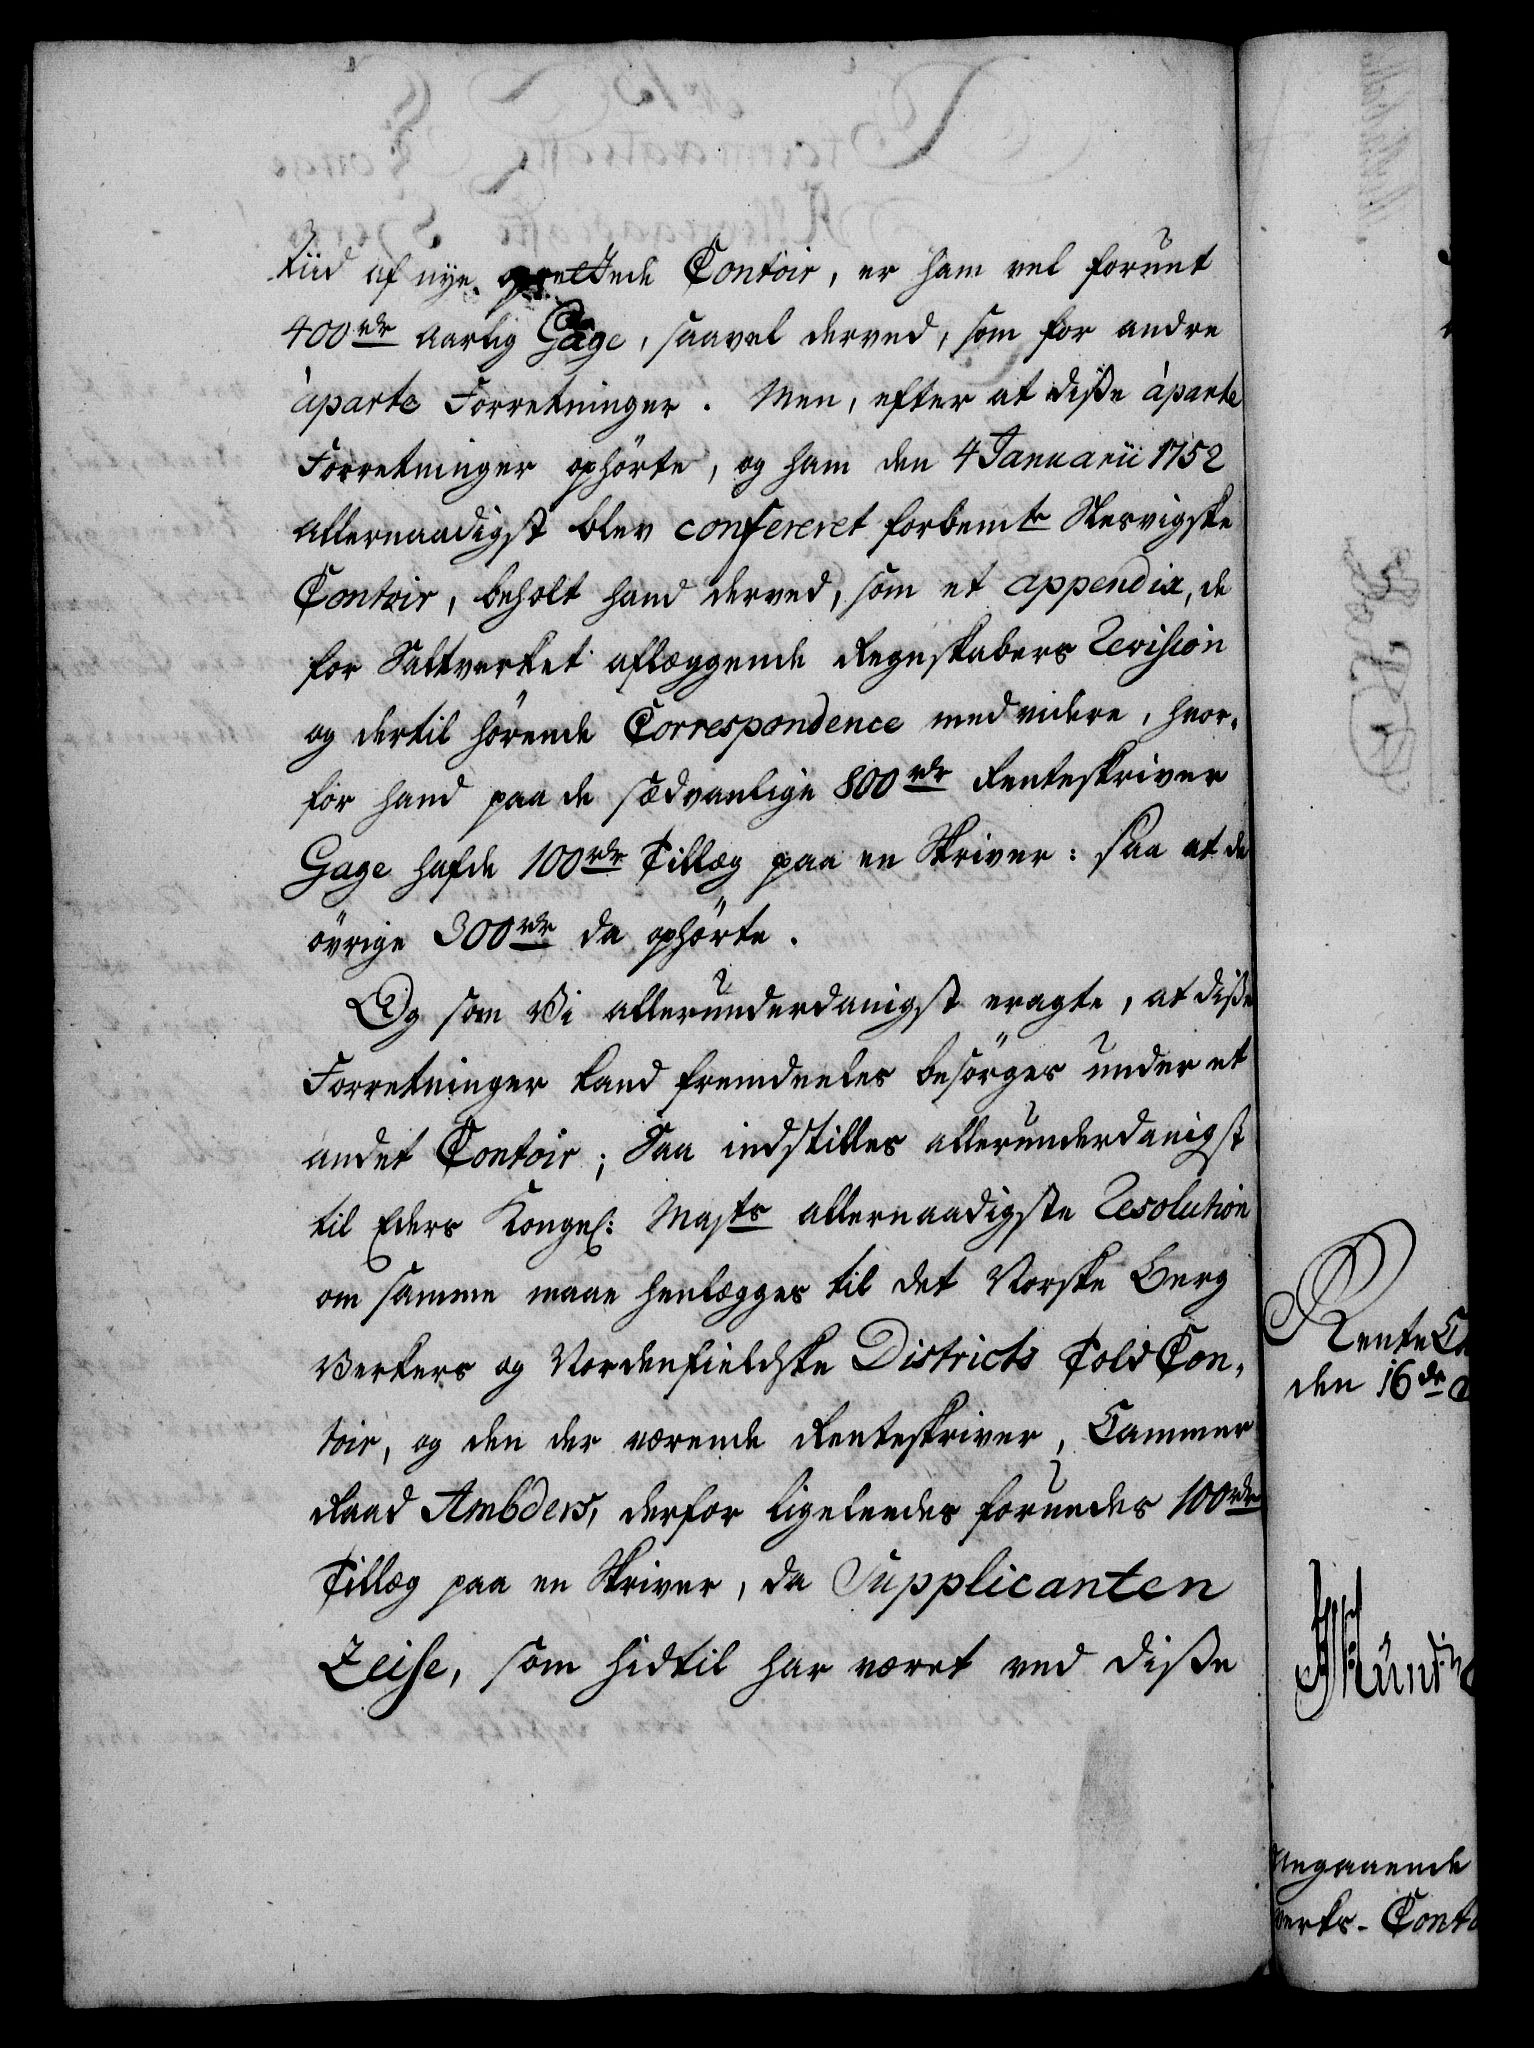 tiid af nye oprettede Contoir, er ham vel forunt
400 rdr aarlig Gage, saavel derved, som for andre
àparte Forretninger. Men, efter at diße àparte
Forretninger ophörte, og ham den 4 Januarii 1752
allernaadigst blev confereret forbemte Slesvigske
Contoir, beholt hand derved, som et appendix, de
for Saltverket aflæggende Regnskabers Revision
og dertil hörende Correspondence med videre, hvor,
for hand paa de sædvanlige 800 rdr Renteskriver
Gage hafde 100 rdr Tillæg paa en Skriver: saa at de
övrige 300 rdr da ophörte.
Og som Vi allerunderdanigst eragte, at diße
Forretninger kand fremdeeles besörges under et
andet Contoir; Saa indstilles allerunderdanigst
til Eders Kongel: Majts allernaadigste Resolution
om samme maae henlægges til det Norske Berg
Verkers og Nordenfieldske Districts Told Con,
toir, og den der værende Renteskriver, Cammer
Raad Ambders, derfor ligeleedes forundes 100 rdr
Tillæg paa en Skriver, da Supplicanten
Zeise, som hidtil har været ved diße
Rente
den 16 de
Angaaende
verks-